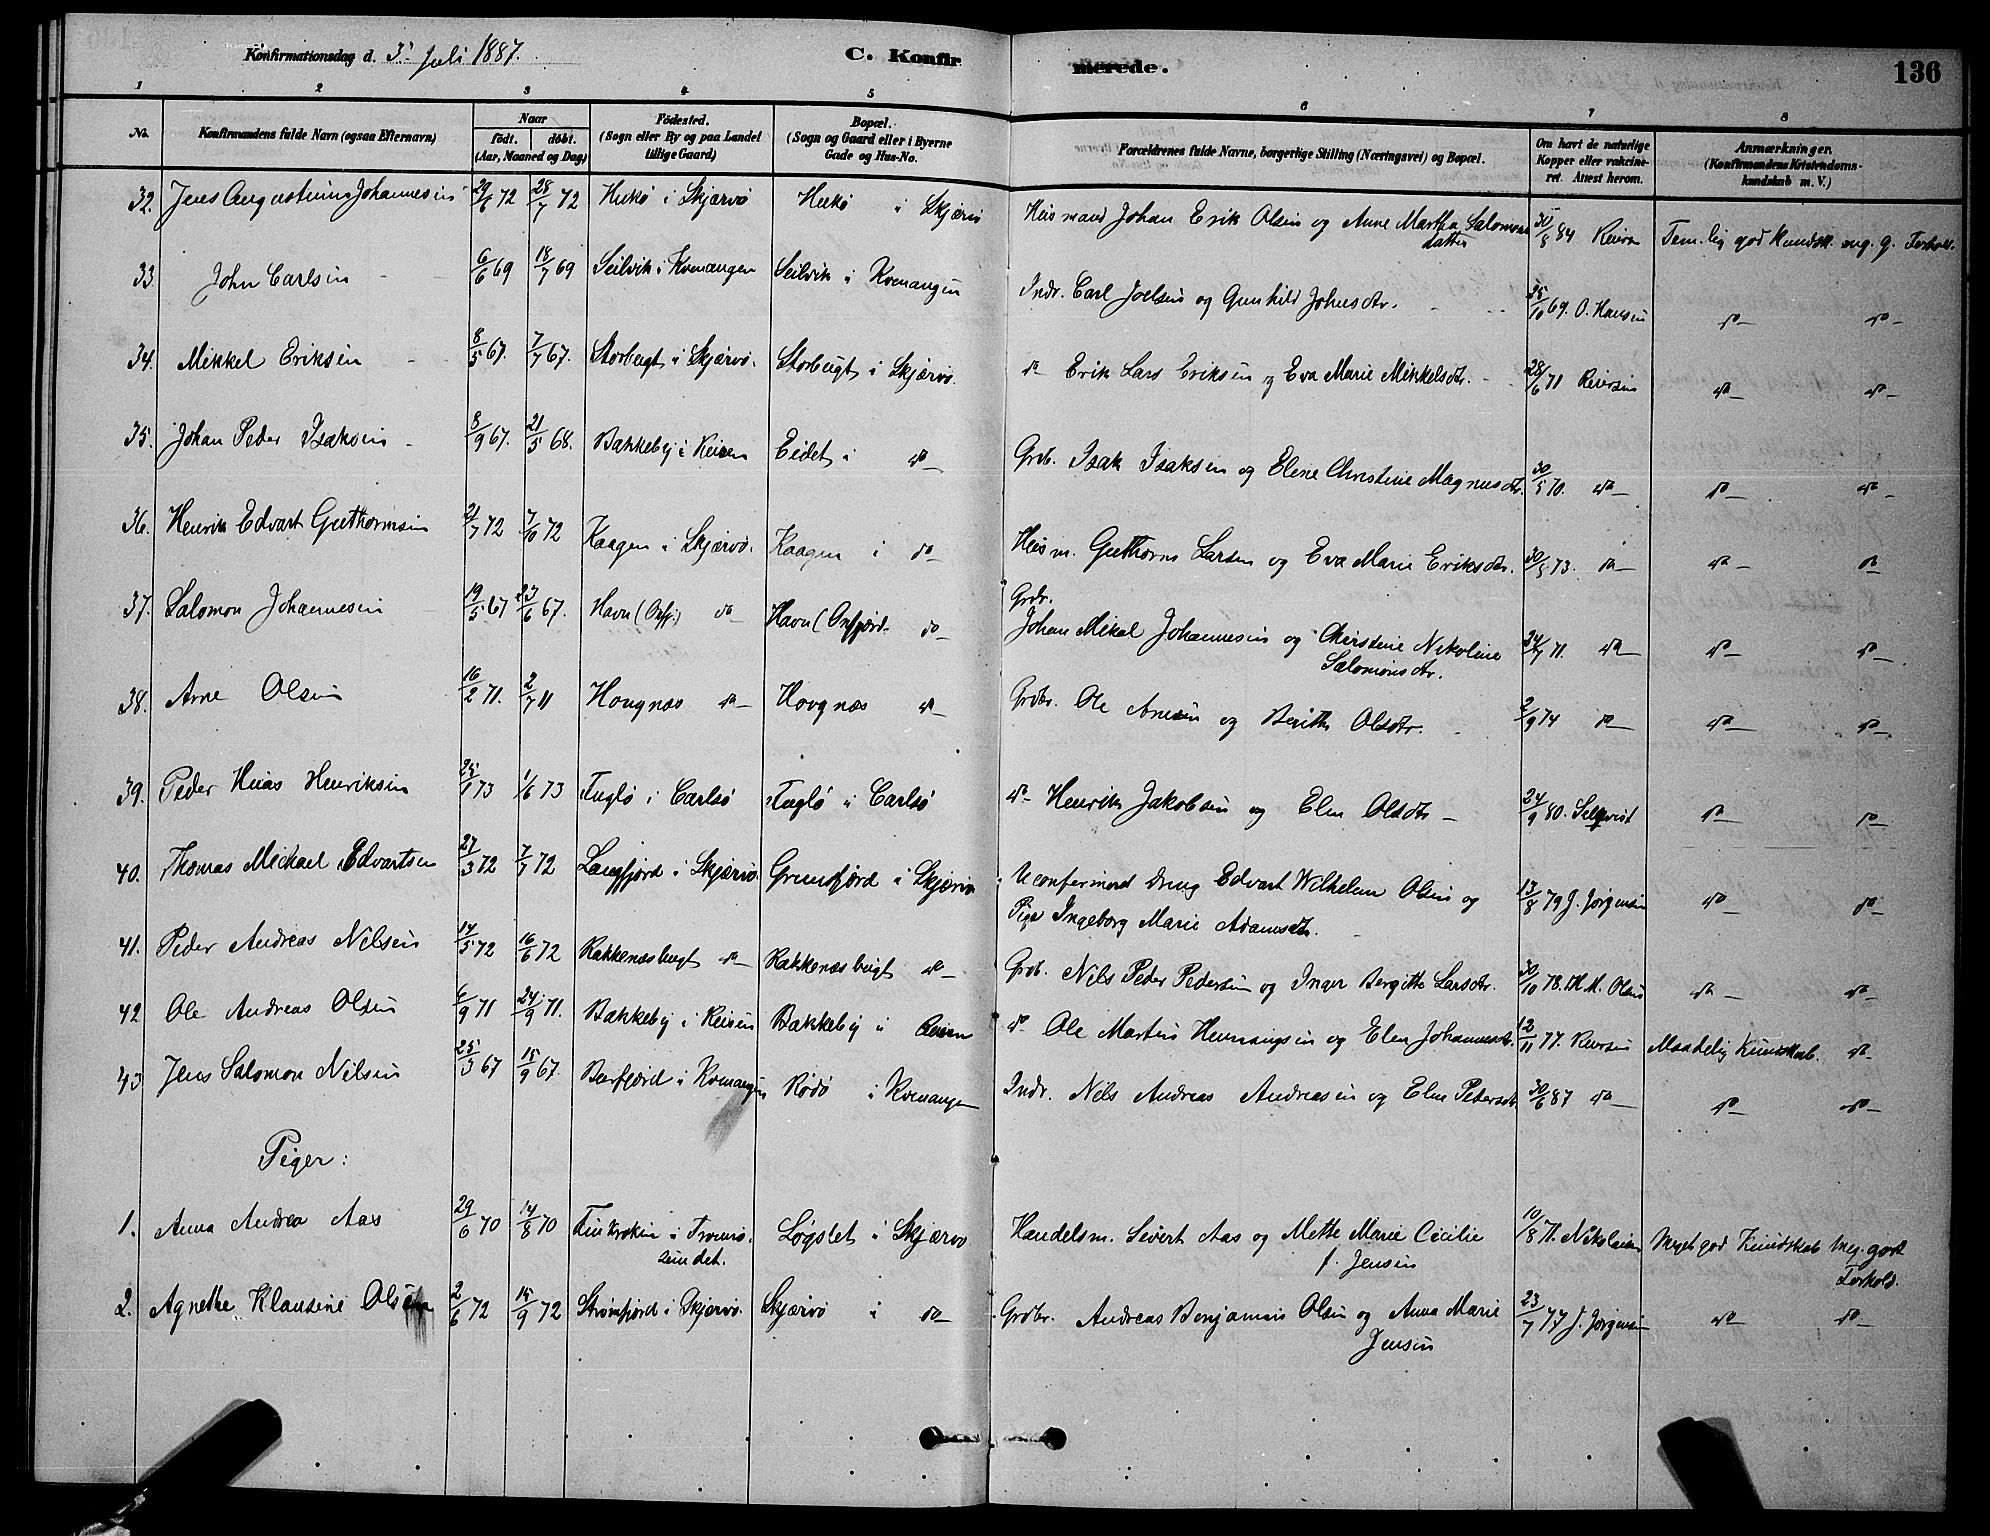 Konfirmationsdag d. 3' Juli 1887.
C. Konfirmerede.
136
1 2 3 4 5 6 7 8
No. Konfirmandens fulde Navn (ogsaa Efternavn) Naar født. døbt. (Aar, Maaned og Dag) Fødested. (Sogn eller By og paa Landet tillige Gaard) Bopæl. (Sogn og Gaard eller i Byerne Gade og Hus-No. Forældrenes fulde Navne, borgerlige Stilling (Næringsvei) og Bopæl. Om havt de naturlige Kopper eller vakcineret. Attest herom. Anmærkninger. (Konfirmandens Kristendomskundskab m. V.)
32. Jens Augustinus Johannesen 29/6 72 28/7 72 Hukø i Skjærvø Hukø i Skjærvø Husmand Johan Erik Olsen og Anne Martha Salomonsdatter 30/8 84 Reiersen Temlig god Kundsk. meg. g. Forhold.
33. John Carlsen 6/6 69 18/7 69 Seilvik i Kvenangen Seilvik i Kvenangen Indr. Carl Joelsen og Gunhild Johnsdtr. 25/10 69. O. Hansen do do
34. Mikkel Eriksen 8/5 67. 7/7 67. Storbugt i Skjærvø. Storbugt i Skjærvø. do Erik Lars Eriksen og Eva Marie Mikkelsdtr. 28/6 71 Reiersen do do
35. Johan Peder Isaksen 8/9 67. 21/5 68. Bakkeby i Reisen Eidet i do Grdb. Isak Isaksen og Elene Christine Magnusdtr. 30/5 70. do do do
36. Henrik Edvart Guthormsen 21/7 72 7/10 72 Kaagen i Skjærvø. Kaagen i do Husm. Guthorm Larsen og Eva Marie Eriksdtr. 30/5 73. do do do
37. Salomon Johannesen 19/5 67 23/6 67. Havn (Oxfj.) do Havn (Oxfjord. do Grdr. Johan Mikal Johannesen og Christine Nikoline Salomonsdtr. 24/7 71. do do do
38. Arne Olsen 16/2 71. 2/7 71 Hougnæs do Hovgnæs do Grdbr. Ole Arnesen og Berith Olsdtr. 2/9 74 do do do
39. Peder Henriksen 25/1 73 1/6 73 Fuglø i Carlsø Fuglø i Carlsø do Henrik Jakobsen og Elen Olsdtr 24/9 80. Selqvist do do
40. Thomas Michael Edvartsen 27/3 72 7/7 72 Langfjord i Skjærvø. Grundfjord i Skjærvø Uconfirmeret Dreng Edvart Wilhelm Olsen og Pige Ingeborg Marie Adamsdtr. 13/8 79 J. Jørgensen do do
41. Peder Andreas Nilsen 14/5 72 16/6 72 Rakkenæsbugt do Rakkenæsbugt do Grdb. Nils Peder Pedersen og Inger Bergitte Larsdtr. 30/10 78. M. M. Olsen do do
42 Ole Andreas Olsen 6/9 71 24/9 71. Bakkeby i Reisen Bakkeby i Reisen do Ole Martin Hemmingsen og Elen Johannesdtr. 12/11 77. Reiersen Maadelig Kundskab. do
43 Jens Salomon Nilsen 25/3 67 15/9 67. Burfjord i Kvenangen Rødø i Kvenangen Indr. Nils Andreas Andreasen og Elen Pedersdtr. 30/6 87 do do do
Piger:
1. Anna Andrea Aas 29/6 70 14/8 70 Finkroken i Tromsøsundet. Løgslet i Skjærvø Handelsm. Sivert Aas og Mette Marie Cecilie f. Jensen 10/8 71. Nikolaisen Meget god Kundskab Meg. godt Forhold.
2. Agnethe Klausine Olsen 2/6 72 15/9 72 Strømfjord i Skjærvø. Skjærvø i do Grdbr. Andreas Benjamin Olsen og Anna Marie Jensen 23/7 77 J. Jørgensen do do